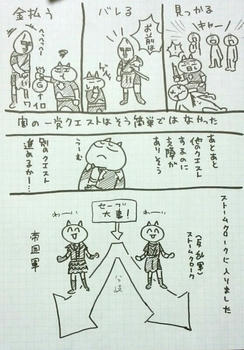 見つかる
キャー!
バレる
お前は
金払う
へへへへ
ワイロ
闇の一党クエストはそう簡単ではなかった
あとあと
他のクエスト
するのに
支障が
ありそう
うーむ
別のクエスト
進めるか…
ストームクロークに入りました
セーブ
大事!
わーい
(反乱軍)
ストームクローク
わーい
帝国軍